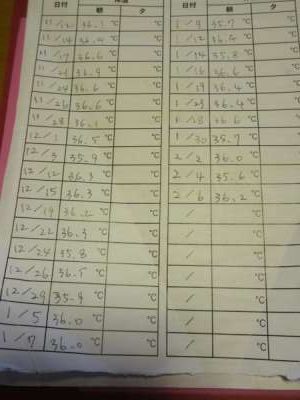 日付 体温 日付
朝 夕 朝 夕
11/12 36.1 ℃ ℃
11/14 36.4 ℃ ℃
11/17 36.6 ℃ ℃
11/21 36.9 ℃ ℃
11/24 36.6 ℃ ℃
11/26 36.6 ℃ ℃
11/28 ℃ ℃
12/1 36.5 ℃ ℃
12/3 35.9 ℃ ℃
12/12 36.3 ℃ ℃
12/15 36.3 ℃ ℃
12/19 36.2 ℃ ℃
12/22 36.3 ℃ ℃
12/24 35.8 ℃ ℃
12/26 36.5 ℃ ℃
12/29 35.9 ℃ ℃
1/5 36.0 ℃ ℃
1/7 36.0 ℃ ℃
1/9 35.7 ℃ ℃
1/12 36.4 ℃ ℃
1/14 35.8 ℃ ℃
1/16 36.6 ℃ ℃
1/19 36.4 ℃ ℃
1/23 36.4 ℃ ℃
1/28 36.6 ℃ ℃
1/30 35.7 ℃ ℃
2/2 36.0 ℃ ℃
2/4 35.6 ℃ ℃
2/6 36.2 ℃ ℃
/ ℃ ℃
/ ℃ ℃
/ ℃ ℃
/ ℃ ℃
/ ℃ ℃
/ ℃ ℃
/ ℃ ℃